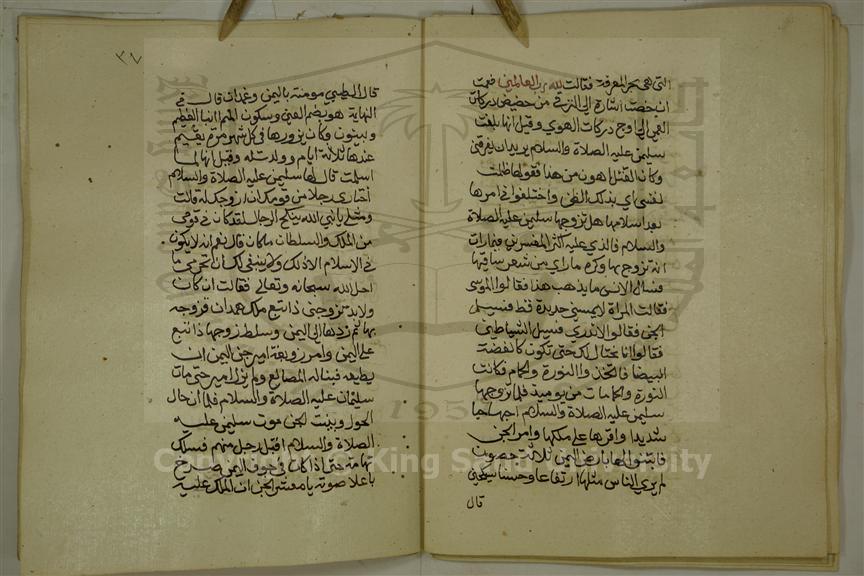 التي هي بحر المعرفة فقالت لله رب العالمين فهمت
ان خصت اشارة الى الترقي من حضيض دركات
الى اوج دركات الهوي وقيل انها بلغت
سليمن عليه الصلاة والسلام يريد ان يغرقني
وكان القتل اهون من هذا فقولها ظلمت
نفسي اي بذلك الظن واختلفوا في امرها
بعد اسلامها هل تزوجها سليمن عليه الصلاة
والسلام فالذي عليه اكثر المفسرين فيما رات
انه تزوج بها وكره ما راي من شعر ساقيها
فسال الانس ما يذهب هذا فقالوا الموسى
فقالت المراة لا يمسني حديدة قط فسيل
الجن فقالوا لا ندري فسيل الشياطين
فقالوا انا نحتال لك حتى تكون كالفضة
البيضا فاتخذوا النورة والحمام فكانت
النورة والحمامات من يوميد فلما تزوجها
سليمن عليه الصلاة والسلام احبها حبا
شديدا واقرها على ملكها وامر الجن
فابتنوا لها بارض اليمن ثلاثة حصون
لم يري الناس مثلها ارتفاعا وحسنا
قال
٣٧
قال الطيبي مومنة باليمن وغمدان قال في
النهاية هو بضم الغين وسكون الميم البنا العظيم
وبينون وكان يزورها في كل شهر مرة يقيم
عندها ثلاثة ايام وولدت له وقيل انها لما
اسلمت قال لها سليمن عليه الصلاة والسلام
اختاري رجلا من قومك ان ازوجك له قالت
ومثلي يا نبي الله ينكح الرجال لقد كان في قومي
من الملك والسلطان ما كان قال نعم انه لا يكون
في الاسلام الا ذلك ولا ينبغي لك ان تحرمي ما
احل الله سبحانه وتعالى فقالت ان كان
ولابد تزوجني ذا تبع ملك همدان فزوجه
بها ثم ردها الى اليمن وسلط زوجها ذا تبع
على اليمن وامر زوبعة امير جن اليمن ان
يطيعه فبنا له المصانع ولم يزل امير حتى مات
سليمان عليه الصلاة والسلام فلما ان حال
الحول وتبينت الجن موت سليمن عليه
الصلاة والسلام اقبل رجل منهم فسلك
تهامة حتى اذا كان في جوف اليمن صرخ
باعلا صوته يا معشر الجن ان الملك عليه
Copyright © King Saud University